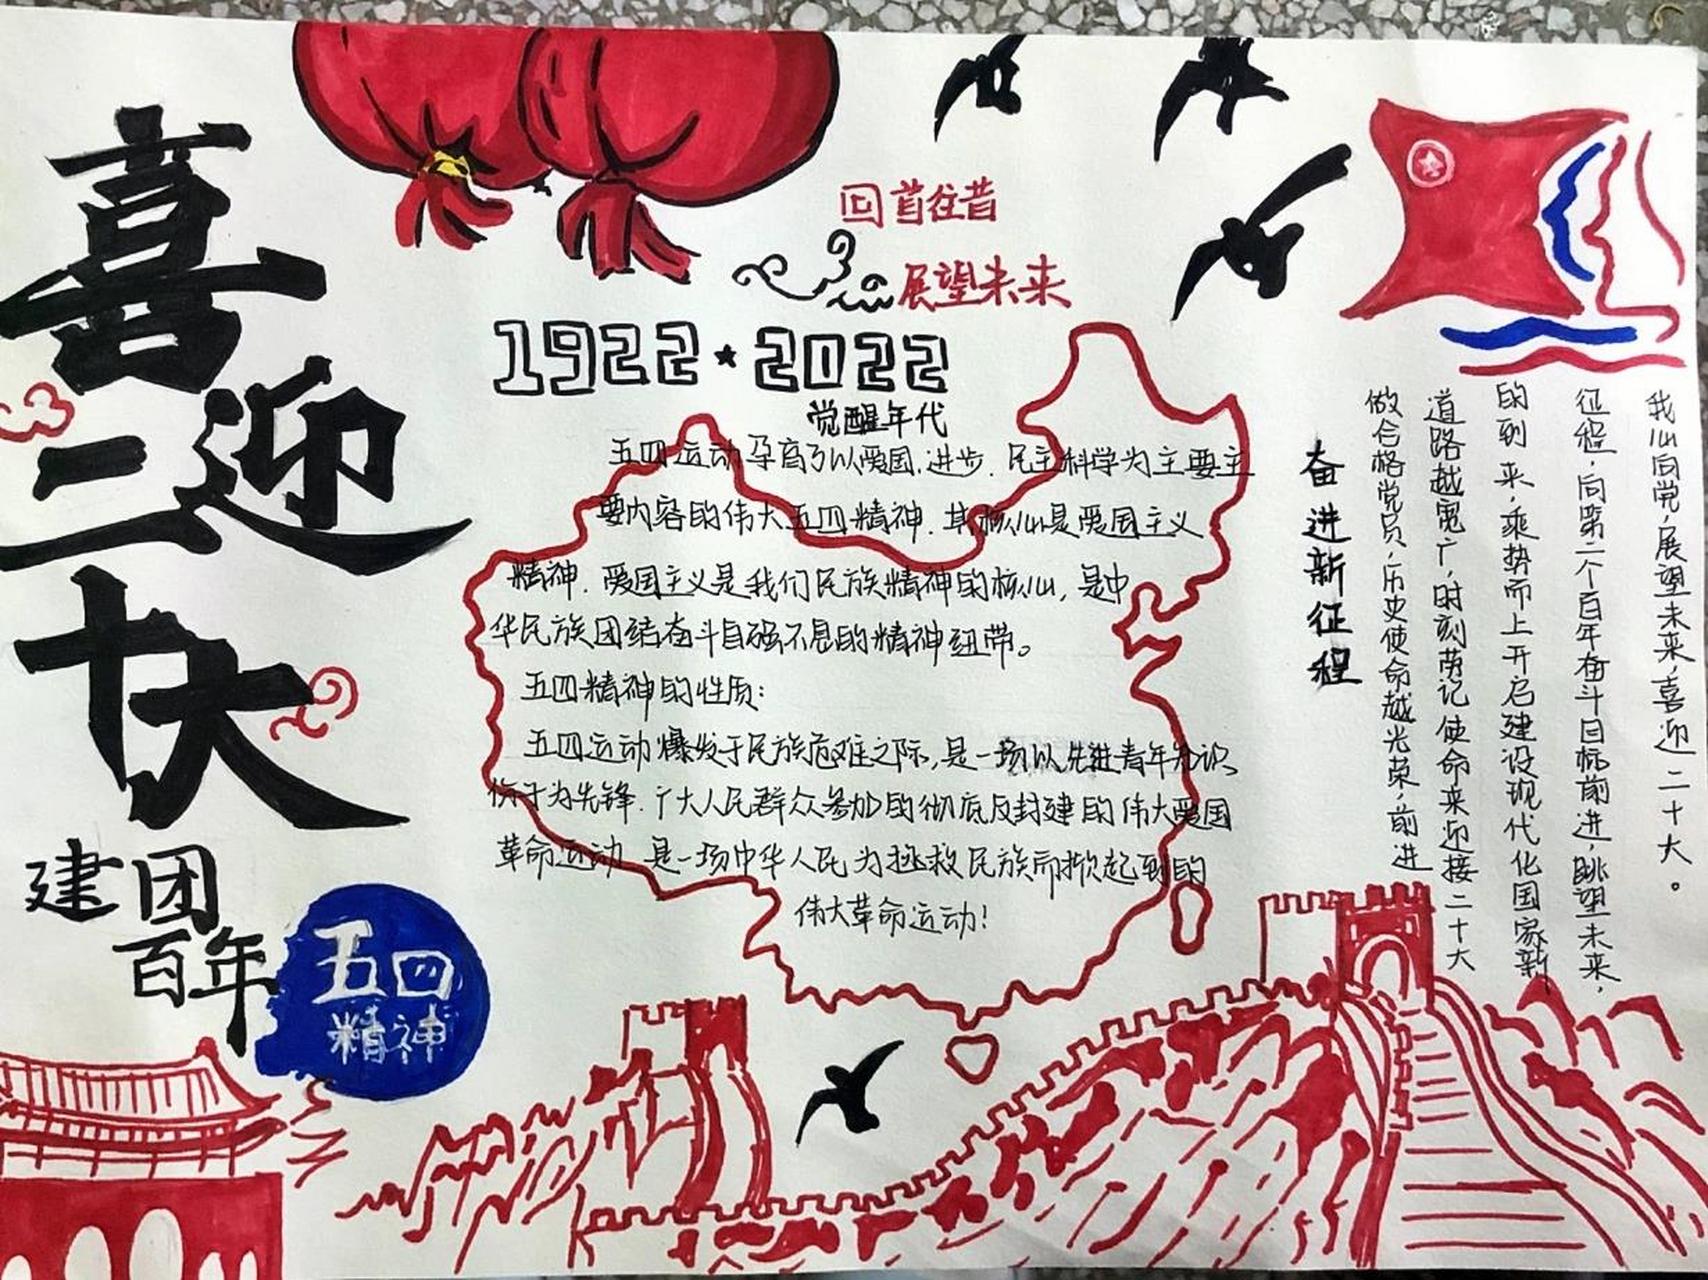 喜迎二十大
建团
百年
五四
精神
回首往昔
展望未来
1922★2022
觉醒年代
五四运动孕育了以爱国.进步.民主科学为主要主
要内容的伟大五四精神.其核心是爱国主义
精神.爱国主义是我们民族精神的核心,是中
华民族团结奋斗自强不息的精神纽带。
五四精神的性质:
五四运动爆发于民族危难之际,是一场以先进青年知识
份子为先锋.广大人民群众参加的彻底反封建的伟大爱国
革命运动 是一场中华人民为拯救民族而掀起到的
伟大革命运动!
我心向党,展望未来,喜迎二十大。
征程,向第二个百年奋斗目标前进,眺望未来,
的到来,乘势而上开启建设现代化国家新
道路越宽广,时刻劳记使命来迎接二十大
做合格党员,历史使命越光荣,前进
奋进新征程